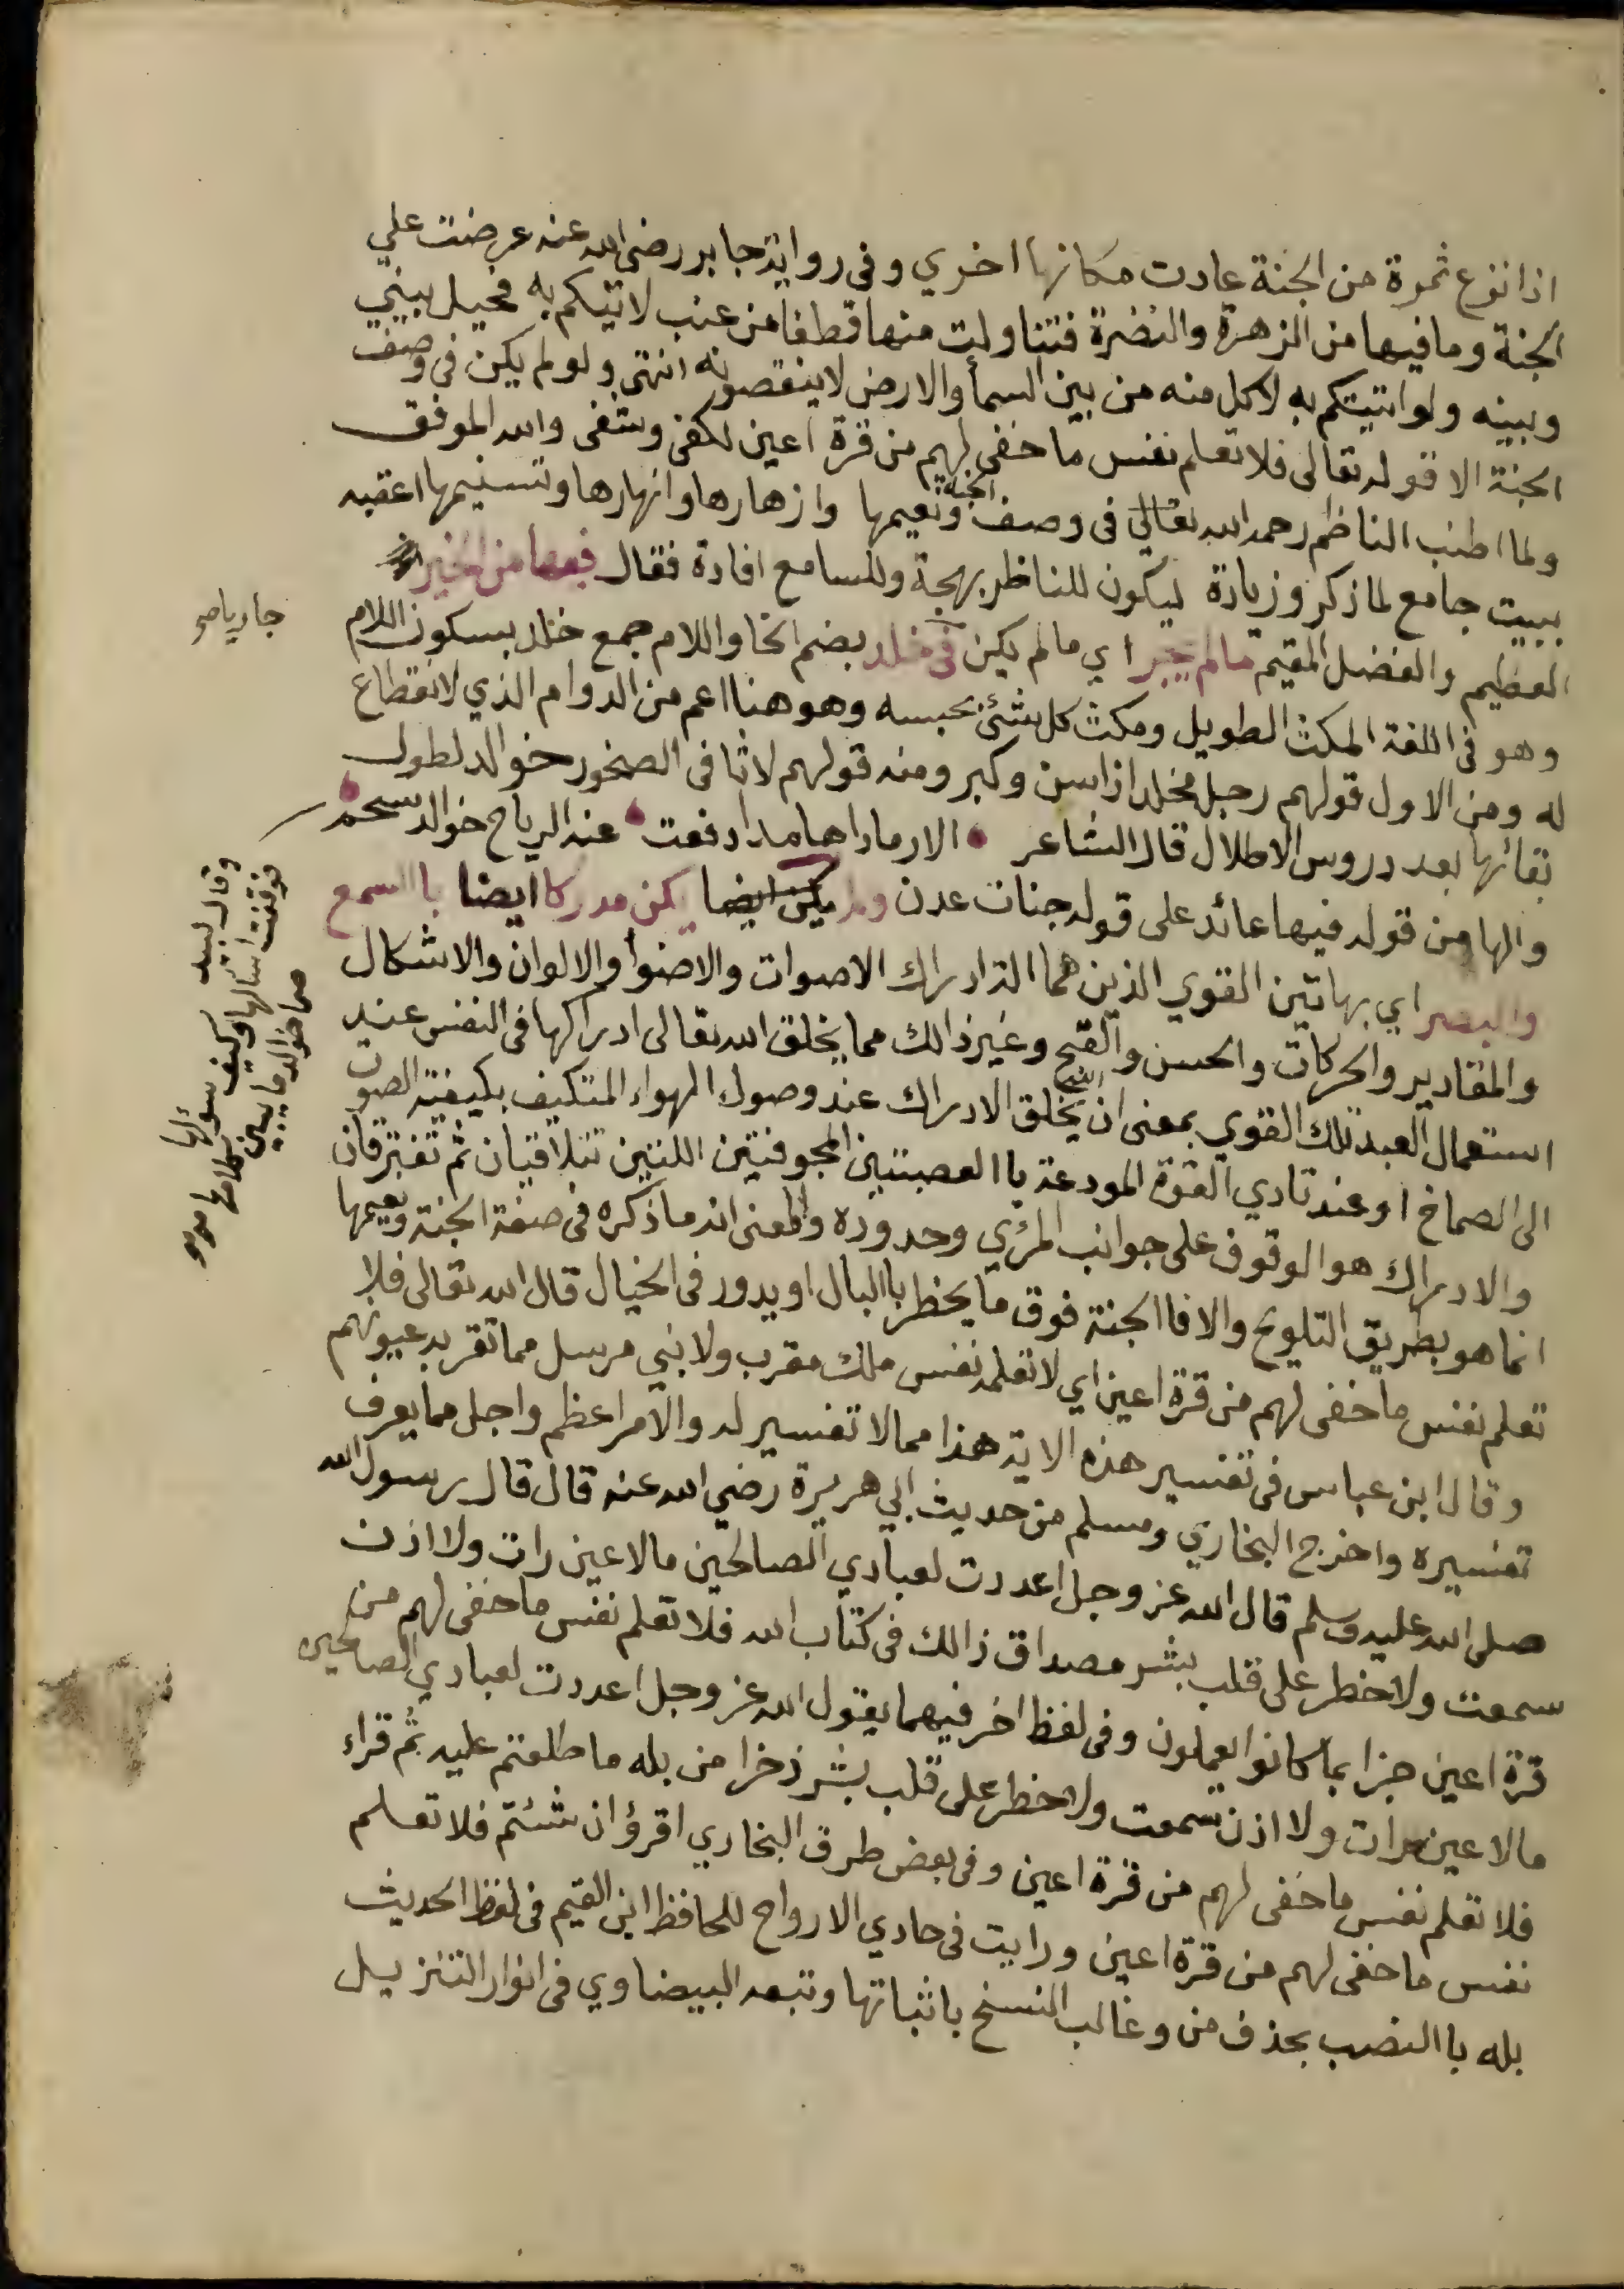 اذا نزع ثمرة من الجنة عادت مكانها اخري وفى رواية جابر رضى الله عنه عرضت علي
الجنة وما فيها من الزهرة والنضرة فتناولت منها قطفا من عنب لاتيكم به فحيل بيني
وبينه ولو اتيتكم به لاكل منه من بين السمأ والارض لا ينقصونه انتهى ولو لم يكن فى وصف
الجنة الا قوله تعالى فلا تعلم نفس ما اخفى لهم من قرة اعين لكفى وشفى والله الموفق
ولما اطنب الناظم رحمه الله تعالى فى وصف الجنة ونعيمها وازهارها وانهارها وتسنيمها اعقبه
ببيت جامع لما ذكر وزيادة ليكون للناظر بهجة وللسامع افادة فقال فيها من الخير
العظيم والفضل المقيم ما لم يجر اي ما لم يكن فى خلد بضم الخا واللام جمع خلد بسكون اللام
وهو فى اللغة المكث الطويل ومكث كل شئ بحبسه وهو هنا اعم من الدوام الذي لا انقطاع
له ومن الاول قولهم رجل مخلد اذا اسن وكبر ومنه قولهم لاثافى الصخور خوالد لطول
بقائها بعد دروس الاطلال قال الشاعر الا رمادا هامدا دفعت عنه الرياح خوالد سحم
والها من قوله فيها عائد على قوله جنات عدن ولم يكن ايضا يكن مدركا ايضا باالسمع
والبصر اي بهاتين القوي الذين هما الة ادراك الاصوات والاضوأ والالوان والاشكال
والمقادير والحركات والحسن والقبح وغير ذالك مما يخلق الله تعالى ادراكها فى النفس عند
استعمال العبد تلك القوي بمعنى ان الله يخلق الادراك عند وصول الهواء المتكيف بكيفية الصوت
الى الصماخ او عند تادي القوة المودعة باالعصبتين المجوفتين اللتين تتلاقيان ثم تفترقان
والادراك هو الوقوف على جوانب المرئي وحدوده والمعنى انه ما ذكره فى صفة الجنة ونعيمها
انما هو بطريق التلويح والا فاالجنة فوق ما يخطر باالبال او يدور فى الخيال قال الله تعالى فلا
تعلم نفس ما اخفى لهم من قرة اعين اي لا تعلمه نفس ملك مقرب ولا نبي مرسل مما تقر به عيونهم
وقال ابن عباس فى تفسير هذه الاية هذا مما لا تفسير له والامر اعظم واجل مما يعرف
تفسيره واخرج البخاري ومسلم من حديث ابي هريرة رضي الله عنه قال قال رسول الله
صلى الله عليه وسلم قال الله عز وجل اعددت لعبادي الصالحين مالا عين رات ولا اذن
سمعت ولا خطر على قلب بشر مصداق ذالك فى كتاب الله فلا تعلم نفس ما اخفى لهم من
قرة اعين جزا بما كانوا يعملون وفى لفظ اخر فيهما يقول الله عز وجل اعددت لعبادي الصالحين
مالا عين رات ولا اذن سمعت ولا خطر على قلب بشر ذخرا من بله ما اطلعتم عليه ثم قراء
فلا تعلم نفس ما اخفى لهم من قرة اعين وفى بعض طرق البخاري اقرؤا ان شئتم فلا تعلم
نفس ما اخفى لهم من قرة اعين ورايت فى حادي الارواح للحافظ ابن القيم فى لفظ الحديث
بله باالنصب بحذف من وغالب النسخ باثباتها وتبعه البيضاوي فى انوار التنزيل
وقال لبيد
فوقفت اسالها وكيف سؤالها
صما خوالد ما يبين كلامها